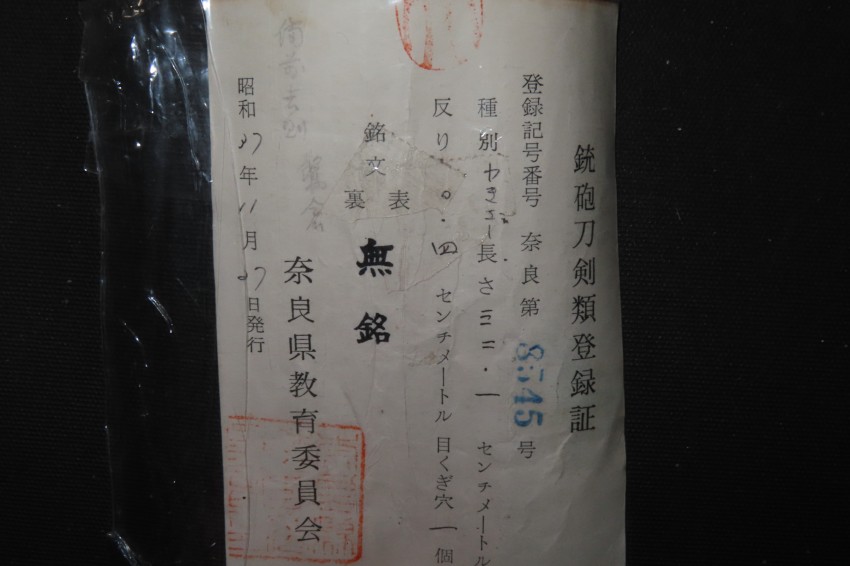 銃砲刀剣類登録証
登録記号番号 奈良第 8545 号
種別 わきざし 長さ 三二・一 センチメートル
反り 〇・四 センチメートル 目くぎ穴 一 個
銘文 表
裏
無銘
奈良県教育委員会
昭和37年11月27日発行